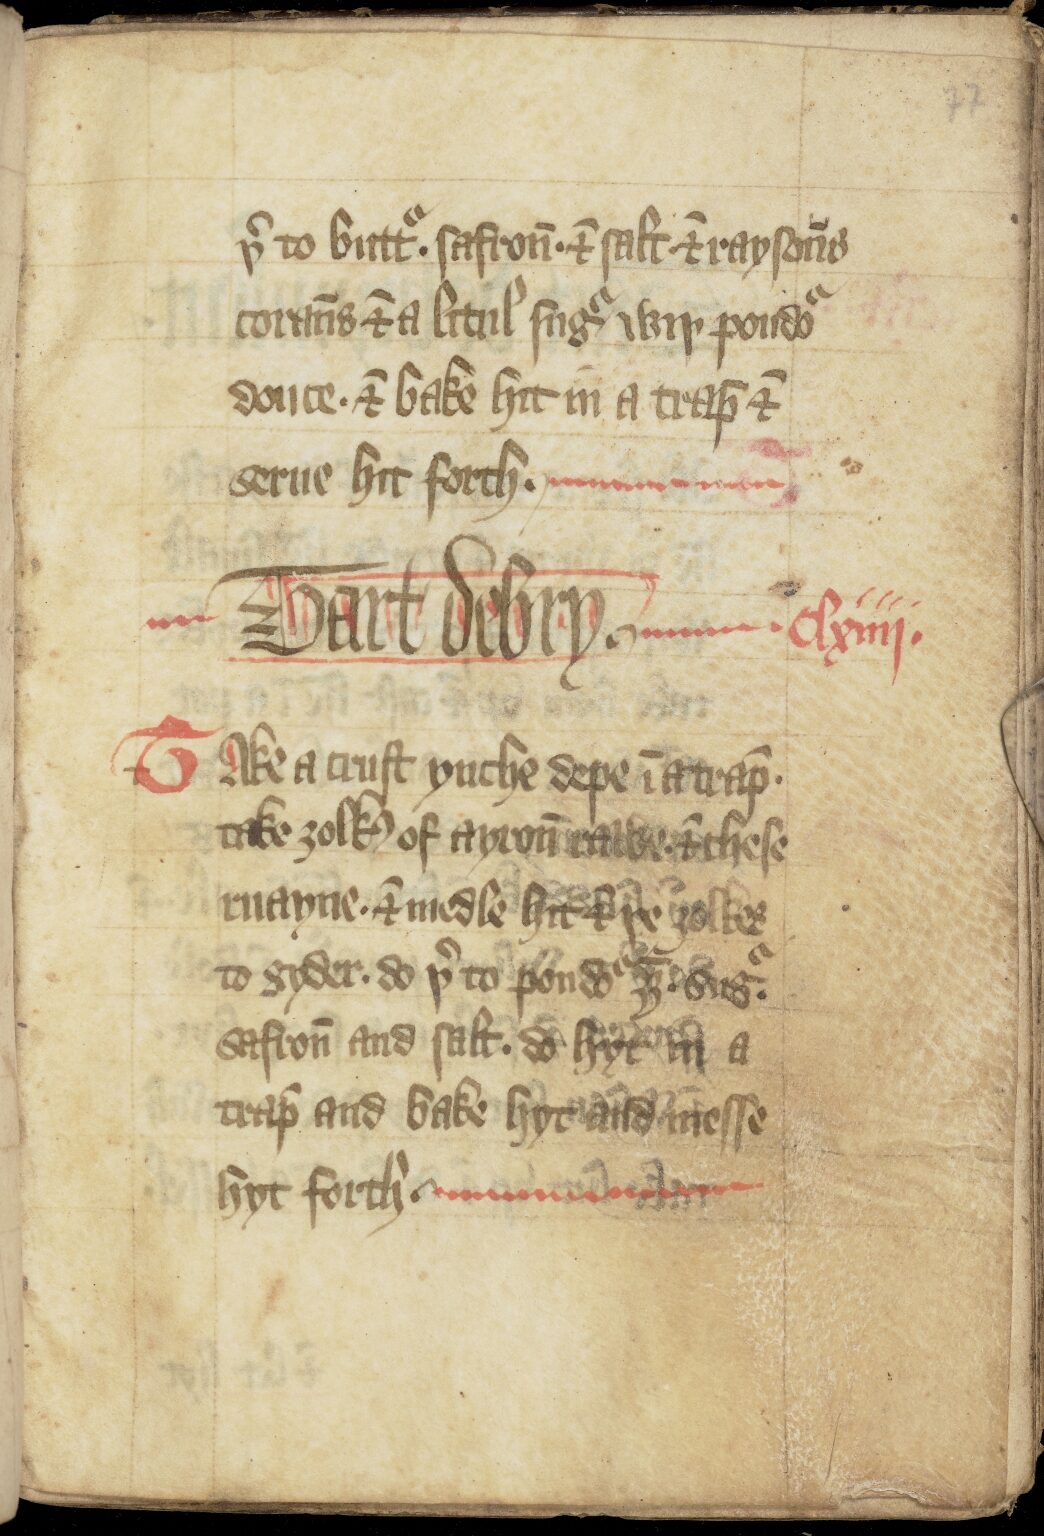 77
þ͛ to buttᵃ. safron̄. ⁊ salt. ⁊ raysoūs
corāns ⁊ a litul sugᵃ wiþ poudᵃ
douce. ⁊ bake hit in a trap̄ ⁊
serue hit forth.
Tart de bry. Clxiiij.
Take a crust ynche depe ī a trap̄.
take ȝolk̛ of ayron̄ rawe. ⁊ chese
ruayne. ⁊ medle hit ⁊ þe ȝolkes
to gyder. do þ͛ to poudᵃ gȳ. sugᵃ.
safron̄ and salt. do hyt in a
trap̄ and bake hyt and messe
hyt forth.